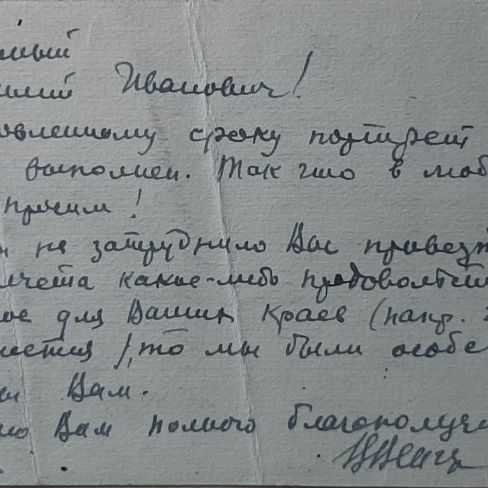 мый
Иванович!
овленному сроку портрет
выполнен. Так что в люб
просим!
не затруднило Вас привезт
счета какое-либо продовольств
ое для Ваших краев (напр.
то мы были особе
ны Вам.
Вам полного благополучи